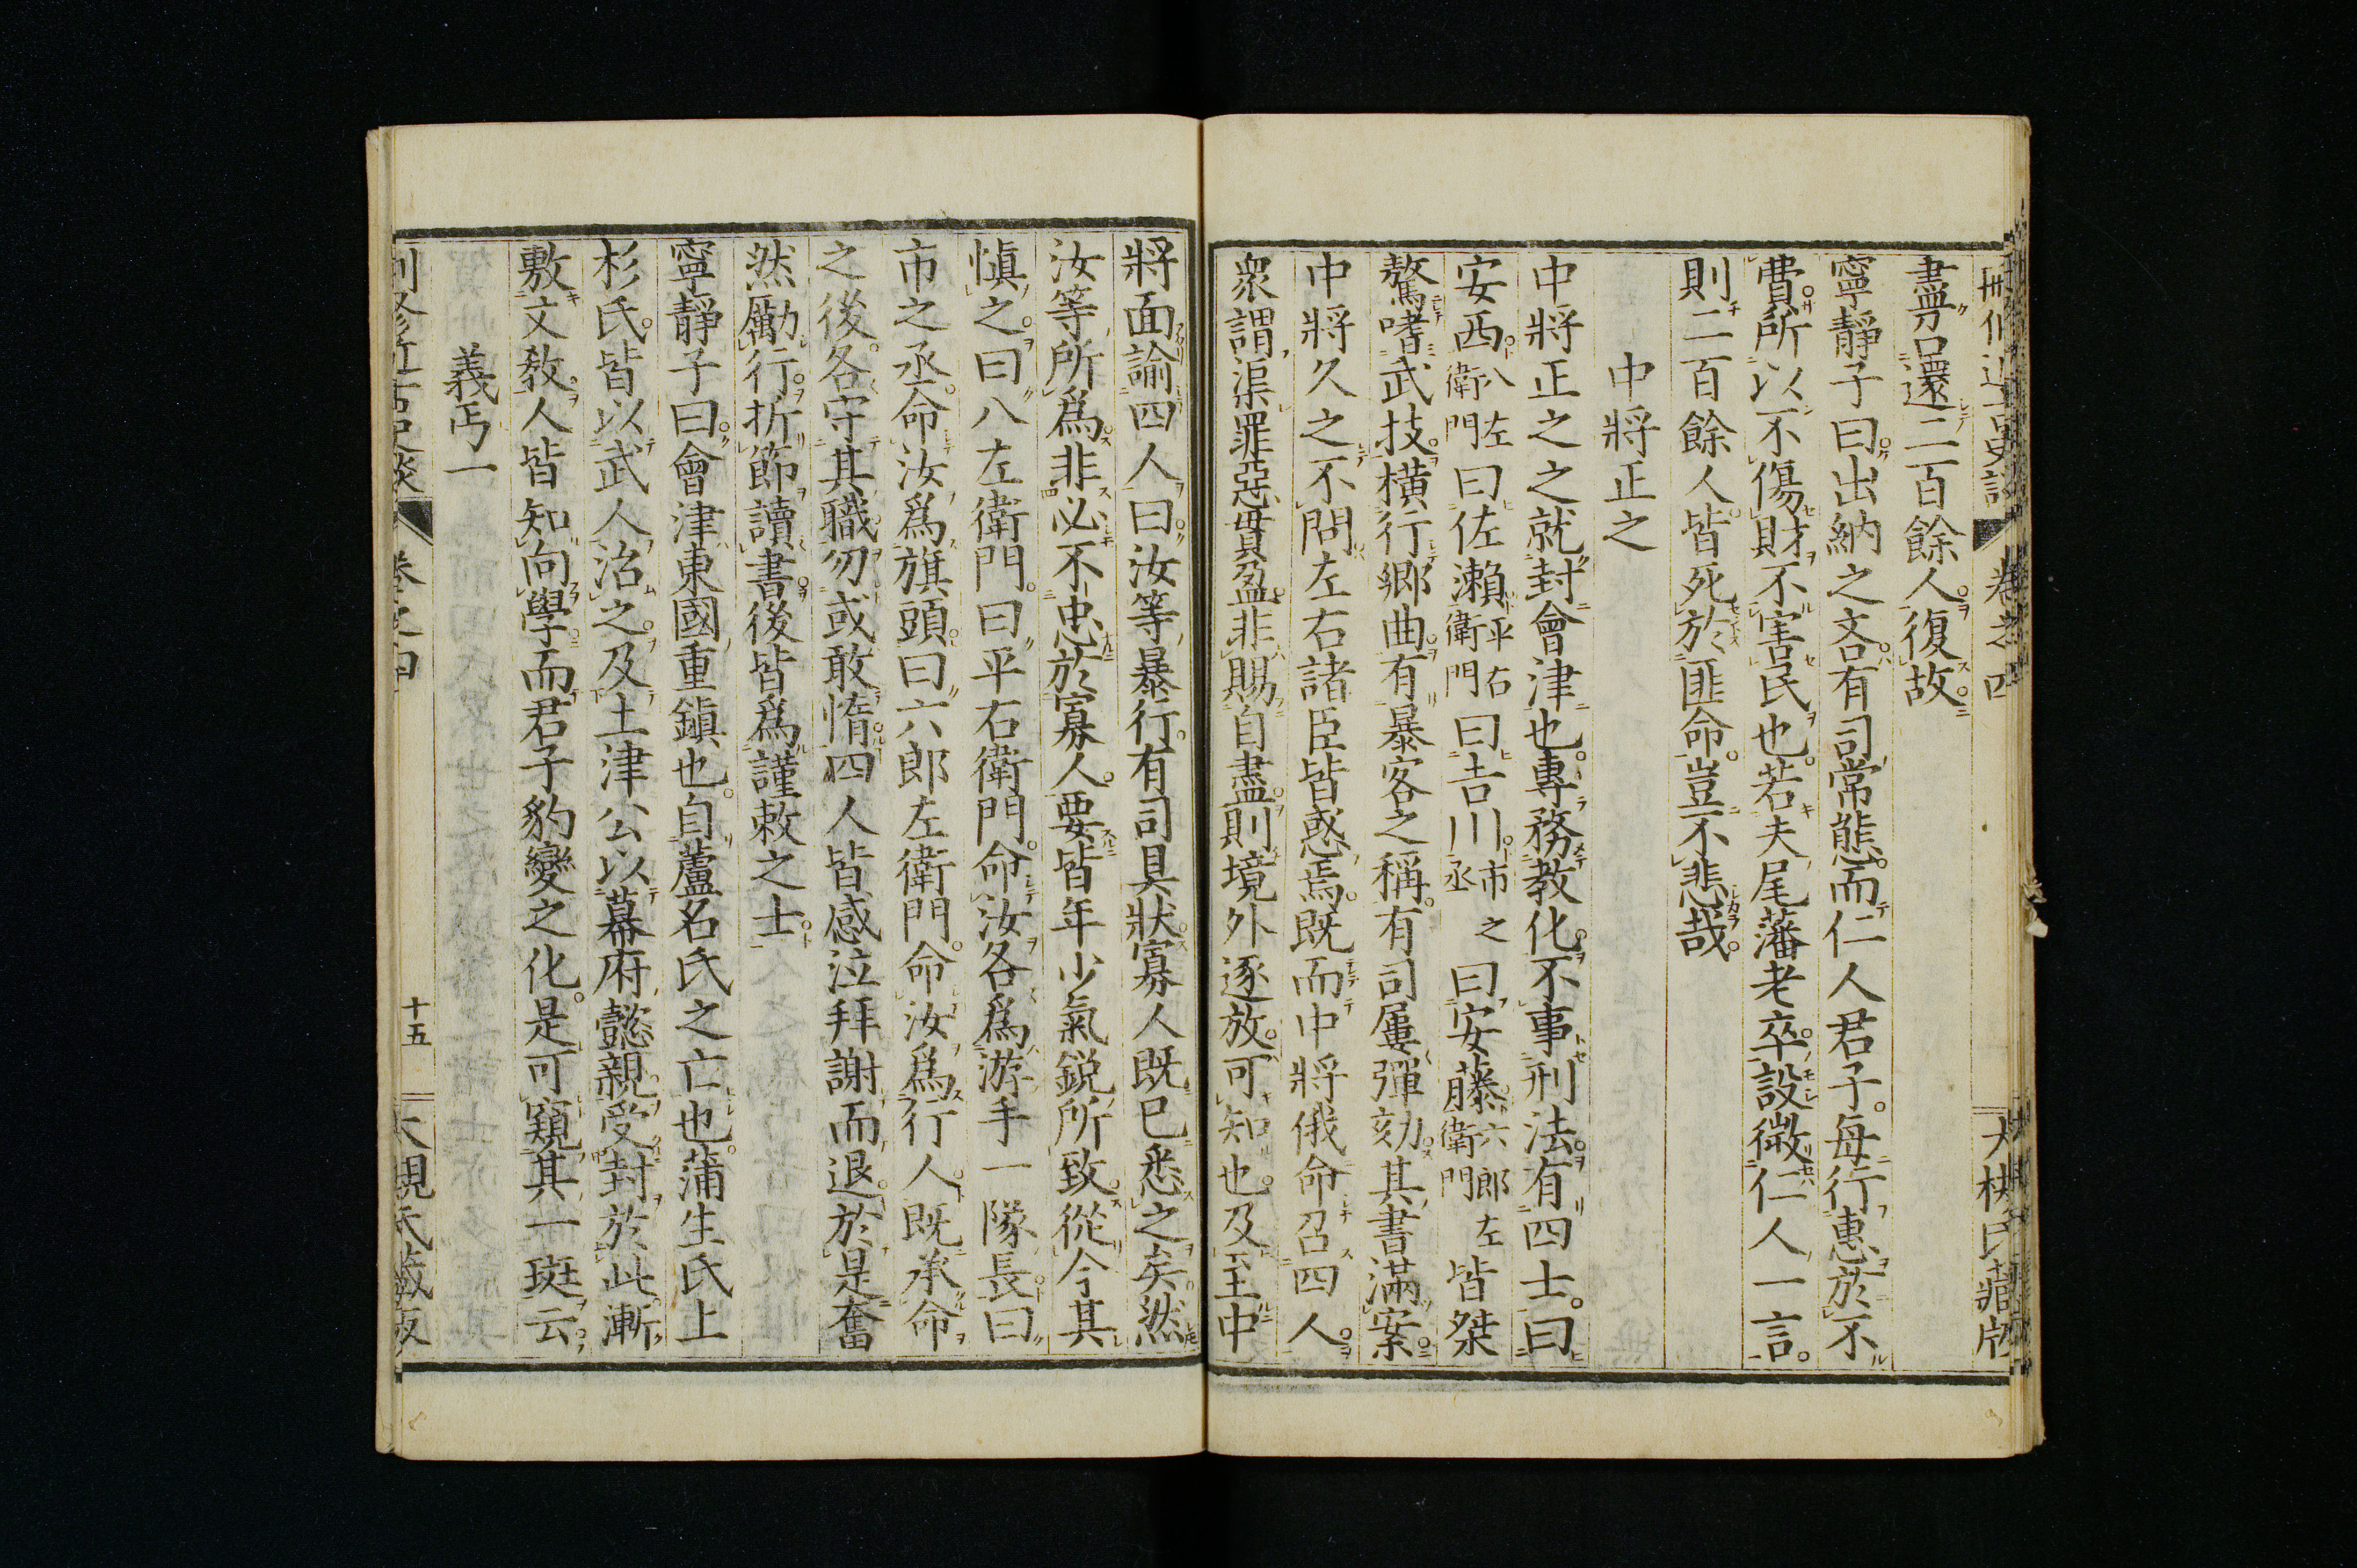 盡另還二百餘人復故
寧靜子曰出納之吝有司常態而仁人君子每行惠於不
費所以不傷財不害民也若夫尾藩老卒設微仁人一言
則二百餘人皆死於匪命豈不悲哉
中將正之
中將正之之就封會津也專務教化不事刑法有四士曰
安西八左衛門曰佐瀨平右衛門曰吉川市之丞曰安藤六郎左衛門皆桀
驁嗜武技橫行鄉曲有暴客之稱有司屢彈劾其書滿案
中將久之不問左右諸臣皆惑焉既而中將俄命召四人
衆謂渠罪惡貫盈非賜自盡則境外逐放可知也及至中
將面諭四人曰汝等暴行有司具狀寡人既已悉之矣然
汝等所爲非必不忠於寡人要皆年少氣銳所致從今其
愼之曰八左衛門曰平右衛門命汝各爲游手一隊長曰
市之丞命汝爲旗頭曰六郎左衛門命汝爲行人既承命
之後各守其職勿或敢惰四人皆感泣拜謝而退於是奮
然勵行折節讀書後皆爲謹敕之士
寧靜子曰會津東國重鎭也自蘆名氏之亡也蒲生氏上
杉氏皆以武人治之及土津公以幕府懿親受封於此漸
敷文教人皆知向學而君子豹變之化是可窺其一斑云
義丐一
卷之四
十五